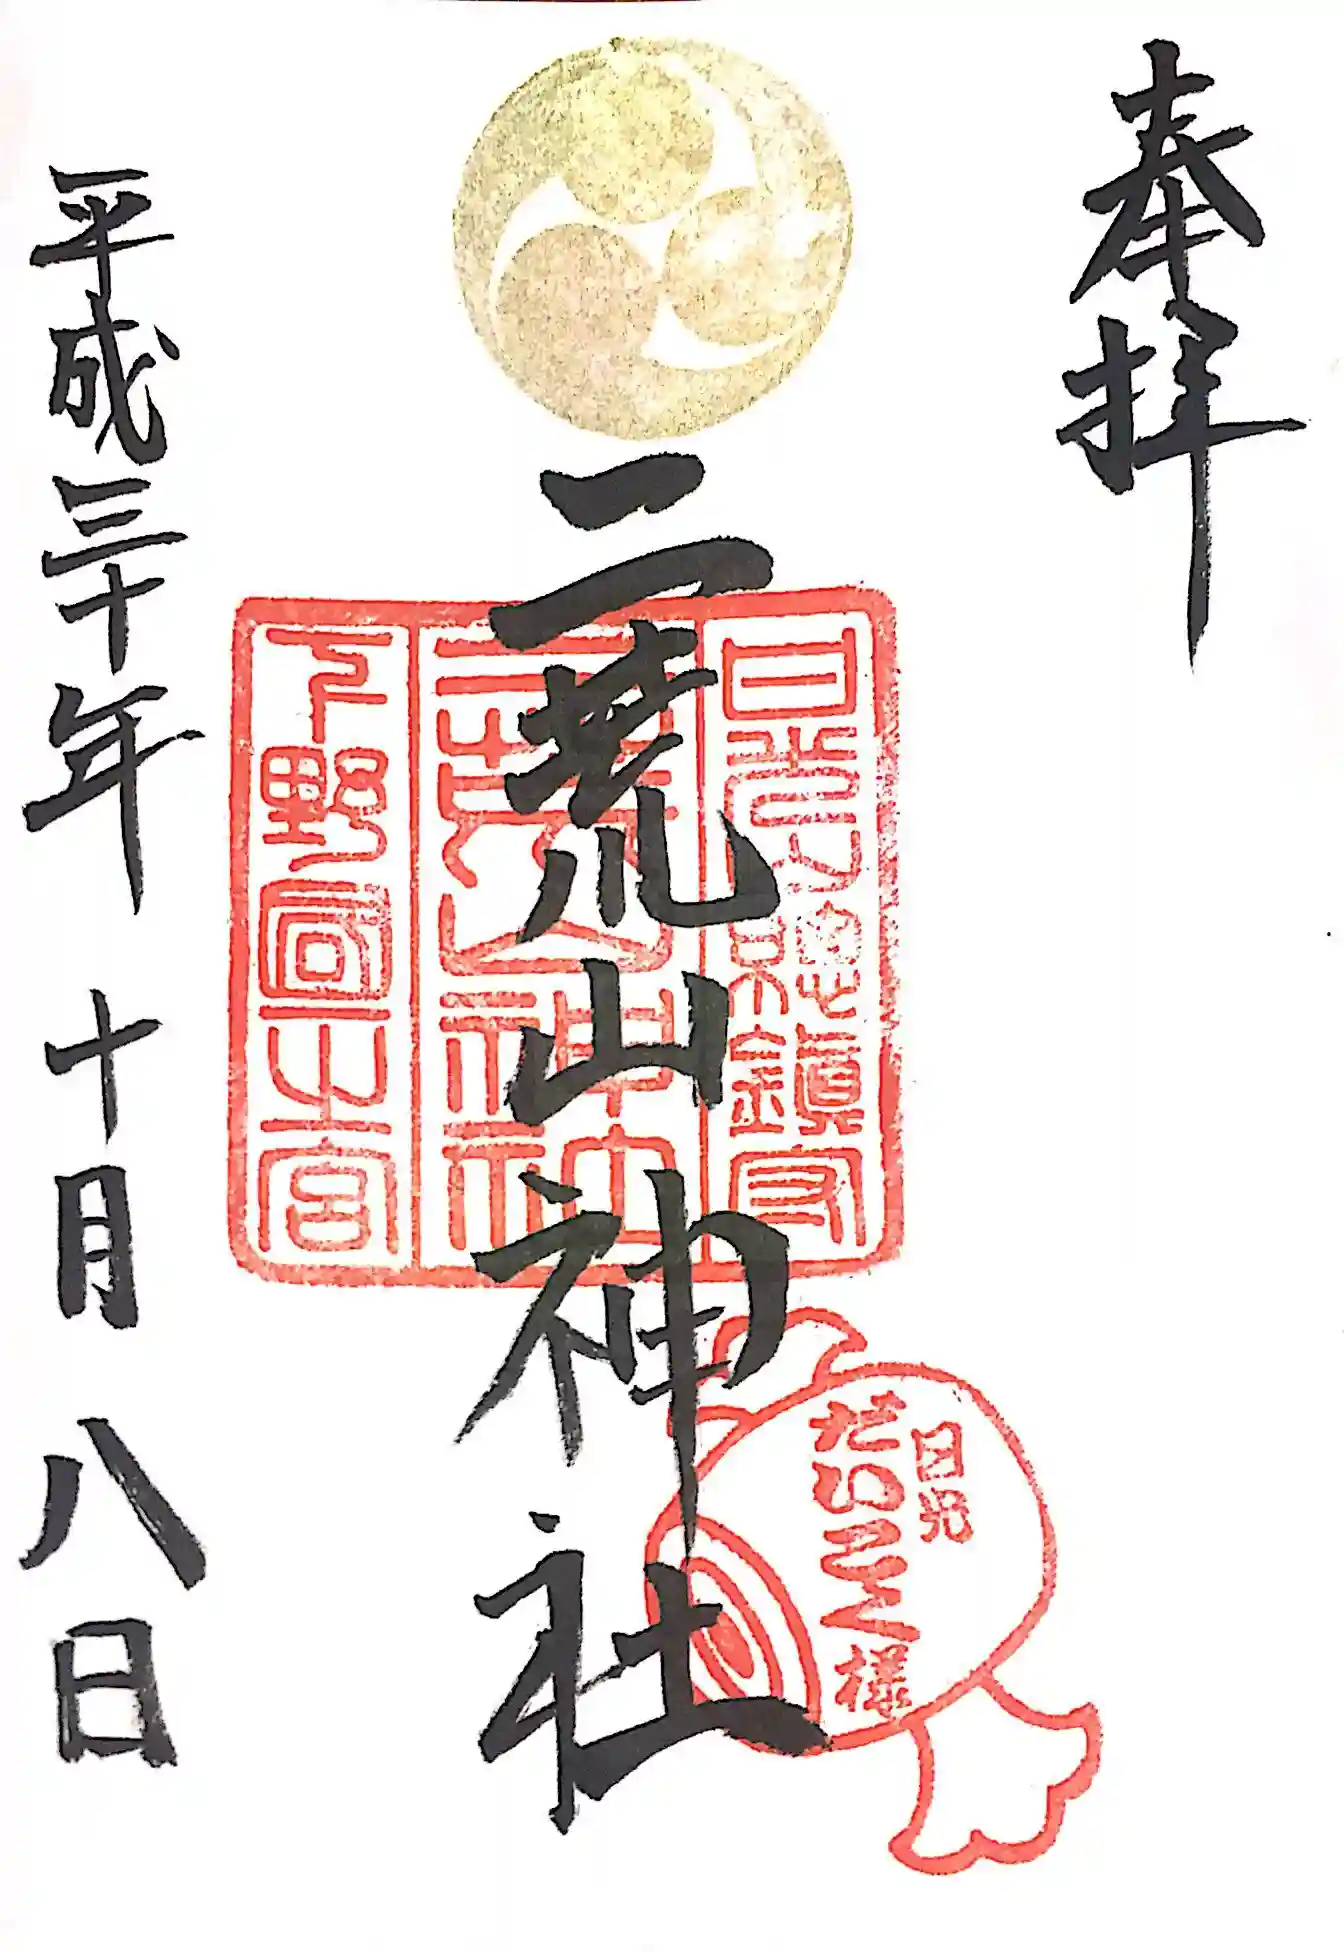 奉拝
二荒山神社
日光惣鎮守
二荒山神社
下野國一宮
日光
だいこく様
平成三十年十月八日